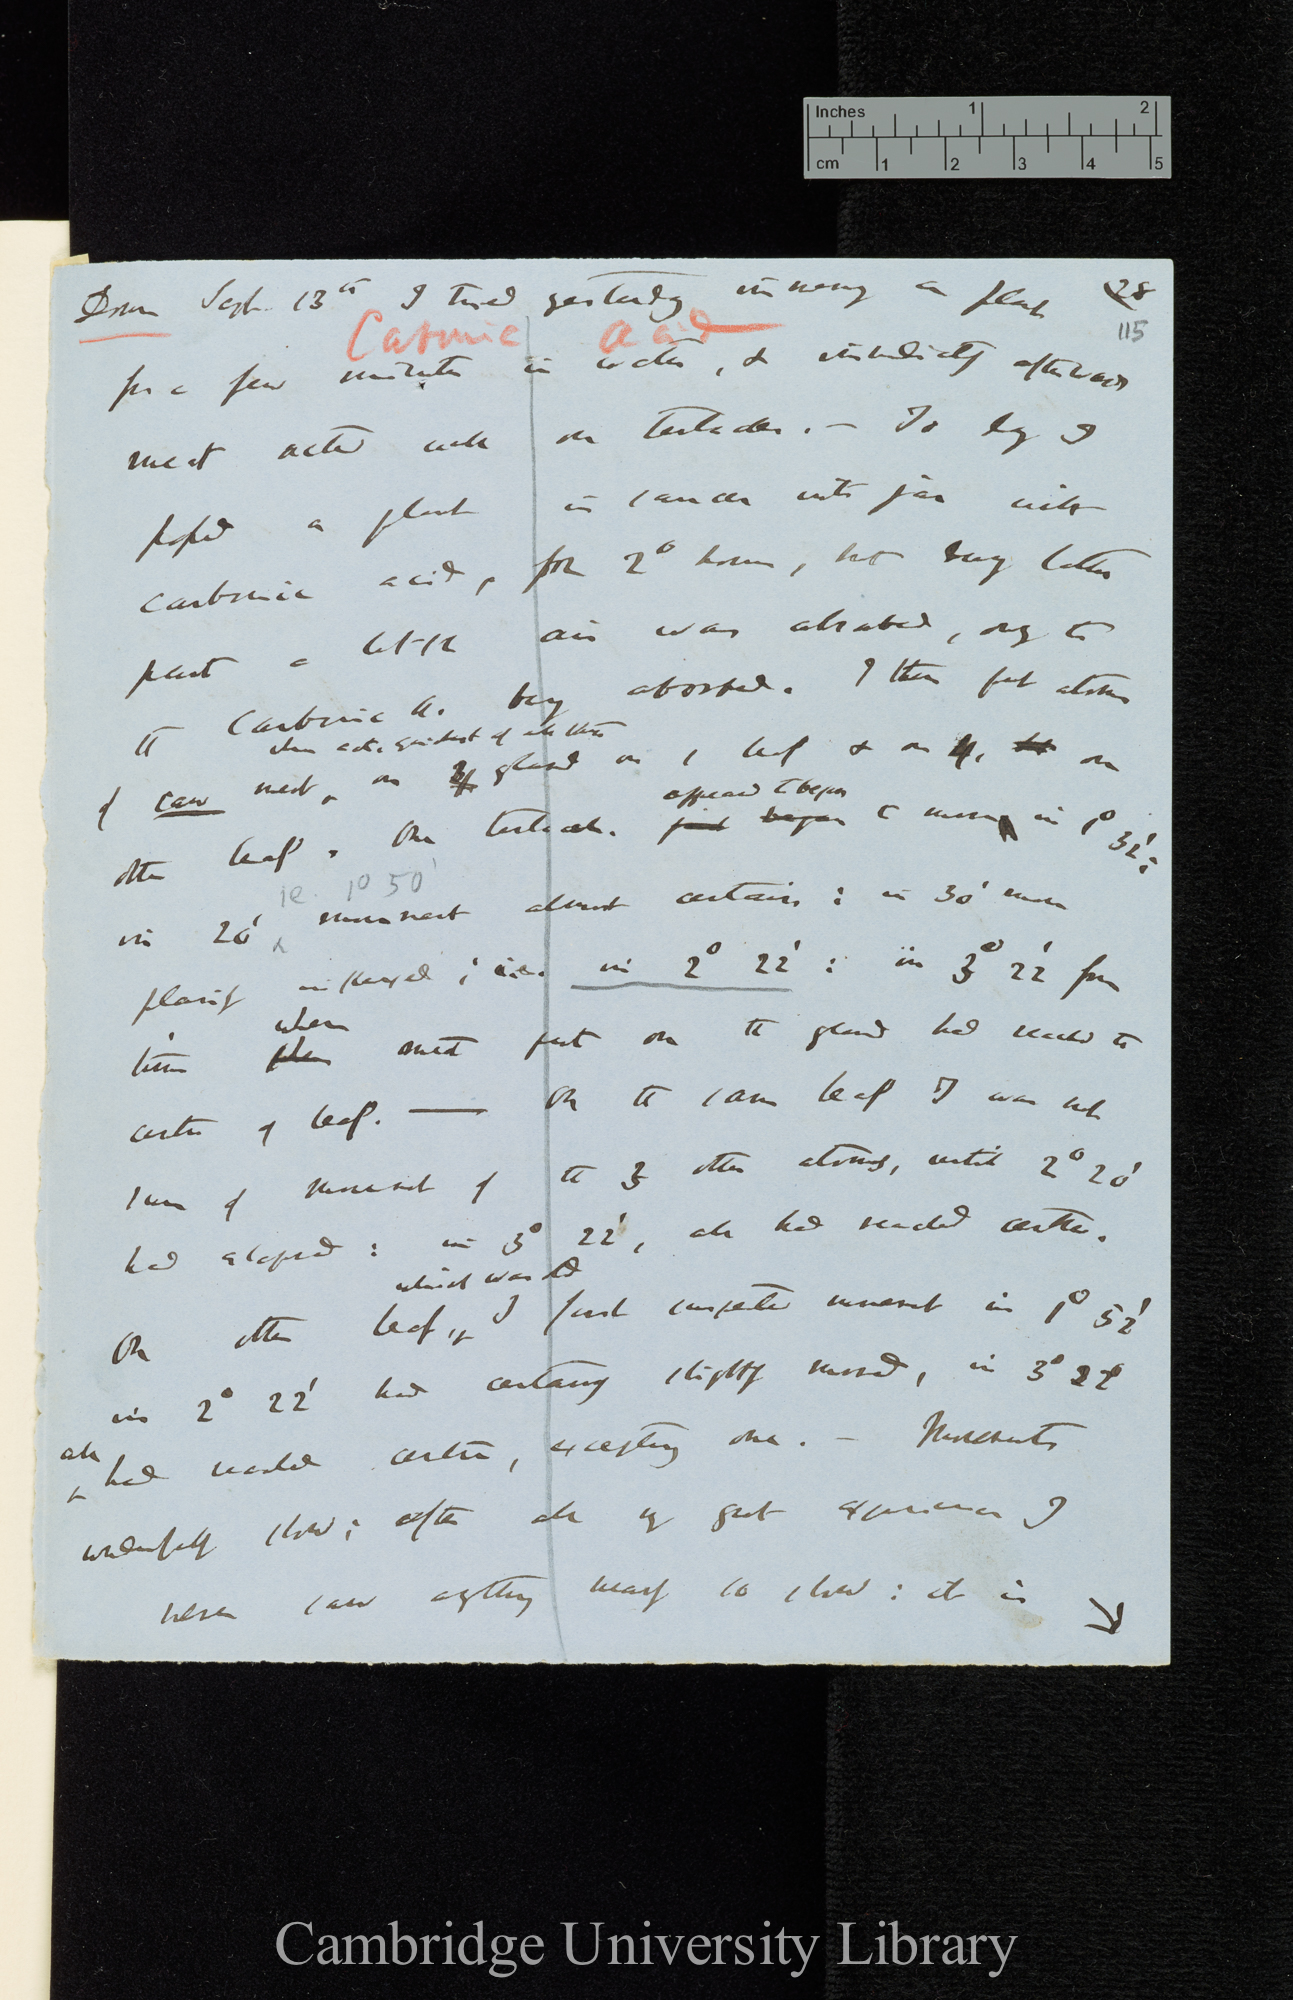 Inches 1 2
cm 1 2 3 4 5
28
115
Down Sept. 13th I tried yesterday immersing a plant
Carbonic acid
for a few minutes in water, & immediately afterwards
meat acted well on tentacles. — To day I
placed a plant in saucer into jar with
carbonic acid, for 2° hours, but very little
air was absorbed, owing to
the Carbonic A. being absorbed. I then put atoms
when acts quickest of all things
of raw meat, on 4 glands on 1 leaf & on 4, on
appeared to begin
other leaf. One tentacle to move in 1° 32';
ie. 1° 50'
in 20' movement almost certain: in 30' more
plainly inflexed; i.e. in 2° 22': in 3° 22' from
when
time meat put on the gland had reached the
centre of leaf. — On the same leaf I was not
sure of movement of the 3 other atoms, until 2° 20'
had elapsed: in 3° 22', all had reached centre.
which was old
On other leaf, I first suspected movement in 1° 52'
in 2° 22' had certainly slightly moved, in 3° 22'
all
had reached centre, excepting one. — Movements
wonderfully slow; after all my great experience I
never saw anything nearly so slow: it is
Cambridge University Library